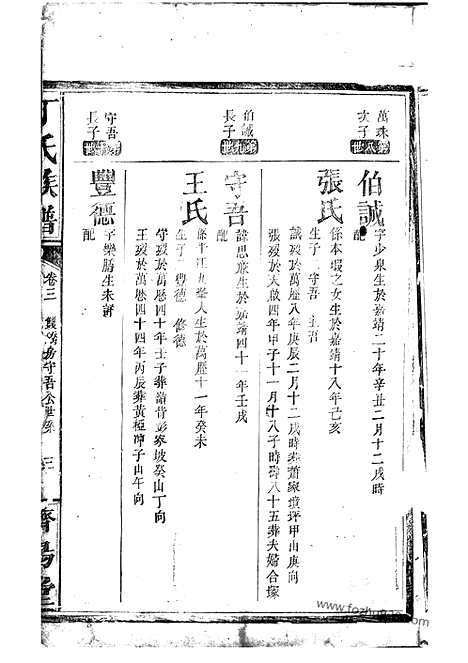 萬珠
次子
世
伯誠
字少泉生於嘉靖二十年辛丑二月十二戌時
配
張氏
係本之女生於嘉靖十八年己亥
生子 守吾 主吾
誠歿於萬曆八年庚辰二月十二戌時葬蕭家墳坪甲山庚向
張歿於天啟四年甲子十一月十八子時壽八十五葬夫婦合塚
伯誠
長子
世
守吾
諱思嚴生於嘉靖四十一年壬戌
配
王氏
係平江人生於萬曆十一年癸未
生子 豐德 修德
守歿於萬曆四十年壬子葬背彭家坡癸山丁向
王歿於萬曆四十四年丙辰葬黃極冲子山午向
守吾
長子
世
豐德
字樂勝生未詳
配
丁氏族譜
卷三
房守吾公世系
三
濟陽堂
www.fozhu920.com